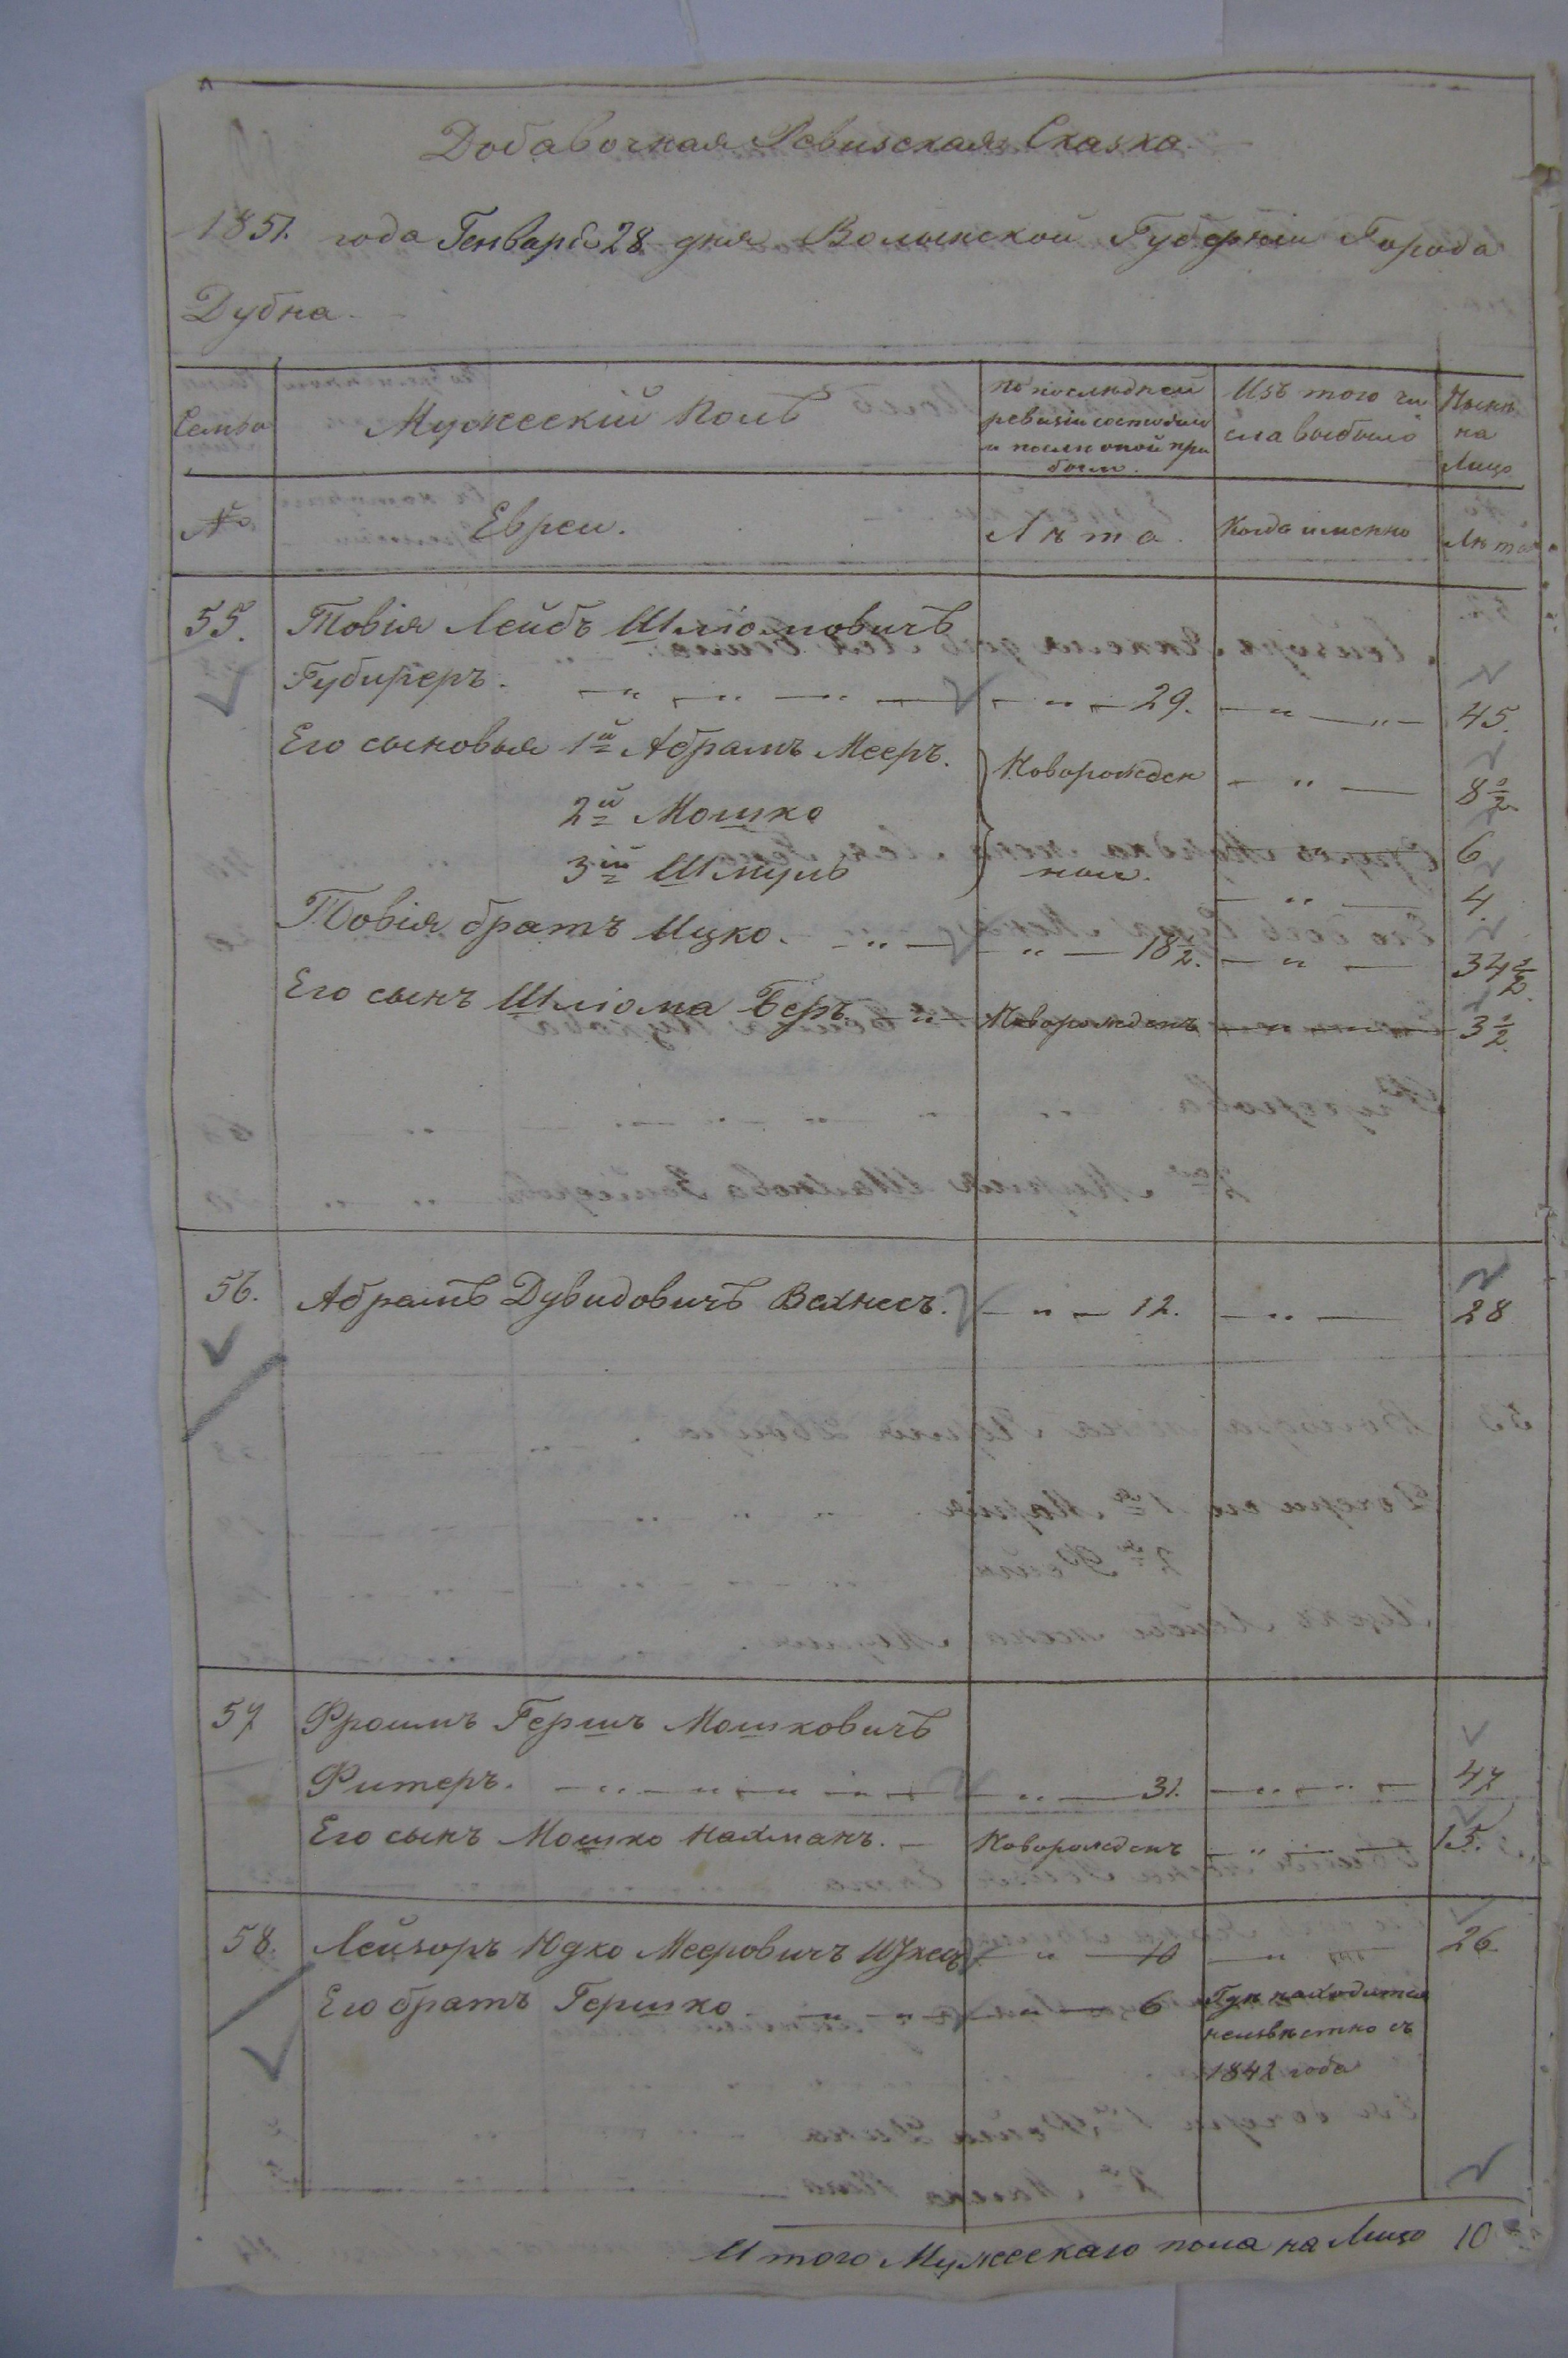 Добавочная Ревизская Сказка
1851. года Генваря 28 дня Волынской Губерніи Города
Дубна.
Семьи
Мужескій Полъ
По последней ревизіи состояло и после оной прибыли.
Изъ того числа выбыло
Ныне на Лицо
№
Евреи.
Лета.
Когда именно
Лета
55. Товія Лейбъ Шліомовичъ
Губиреръ. 29. 45.
Его сыновья 1й Абрамъ Мееръ. Новорожден 8½
2й Мошко 6
3ій Шмуль ныи. 4.
Товія братъ Ицко. 18½. 34½.
Его сынъ Шліома Беръ Новорожденъ 3½.
56. Абрамъ Дувидовичъ Вахнесъ. 12. 28
57 Фроимъ Гершъ Мошковичъ
Ритеръ. 31. 47
Его сынъ Мошко Нахманъ. Новорожденъ 15.
58. Лейзоръ Юдко Мееровичъ 10 26.
Его братъ Гершко 6 Где находится
неизвестно съ
1842 года
Итого Мужескаго пола на Лицо 10